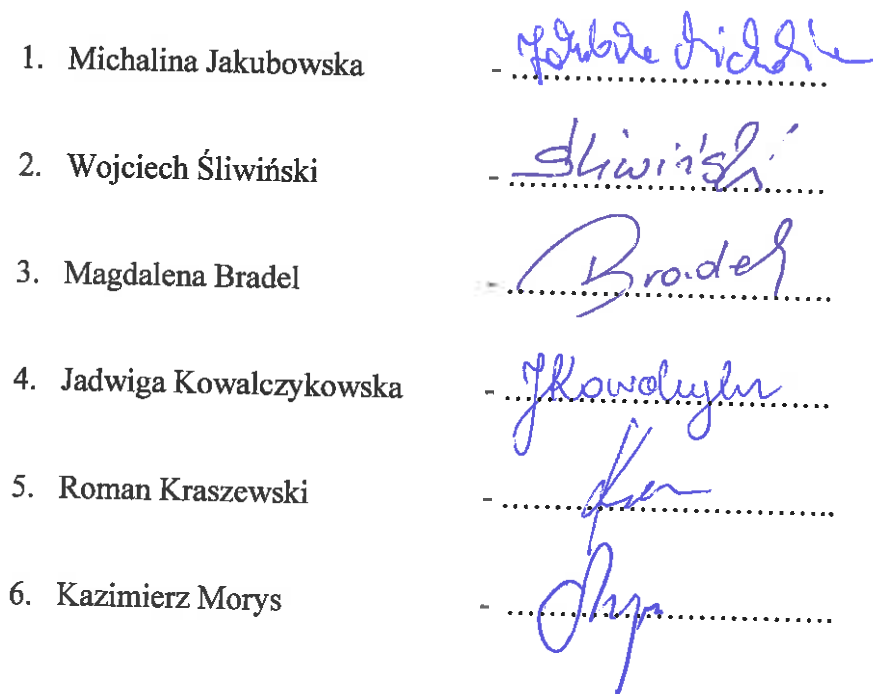 1. Michalina Jakubowska -
2. Wojciech Śliwiński - Śliwiński
3. Magdalena Bradel - Bradel
4. Jadwiga Kowalczykowska -
5. Roman Kraszewski -
6. Kazimierz Morys -